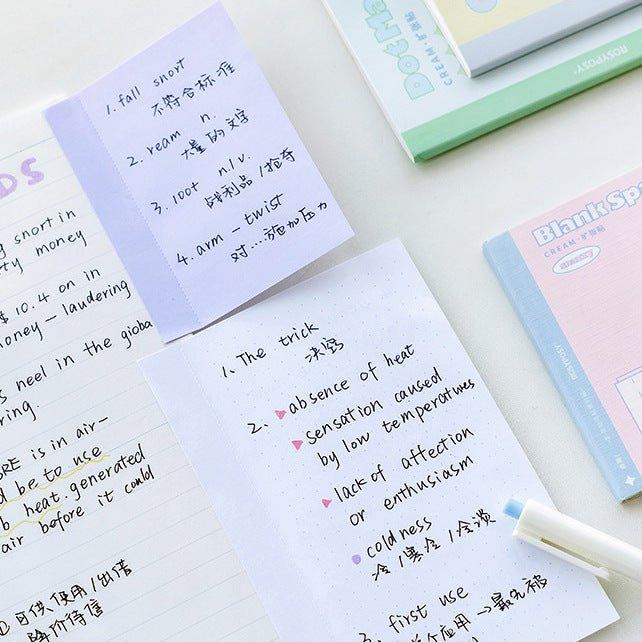 1. fall snort
不符合标准
2. ream n.
大量的文字
3. loot n./v.
战利品/抢夺
4. arm-twist
对…施加压力
DS
g snort in
ty money
$ 10.4 on in
oney-laudering
s neel in the gioba
ring
RE is in air-
d be to use
b heat generated
air before it could
① 可供使用/出借
降价待售
1、The trick
决窍
2、absence of heat
sensation caused
by low temperatures
lack of affection
or enthusiasm
coldness
冷/寒冷/冷淡
first use
应用→最先被
Dot Ma
CREAM·旷张贴
ROSYPOSY
Blank Sp
CREAM·旷张贴
ROSYPOSY